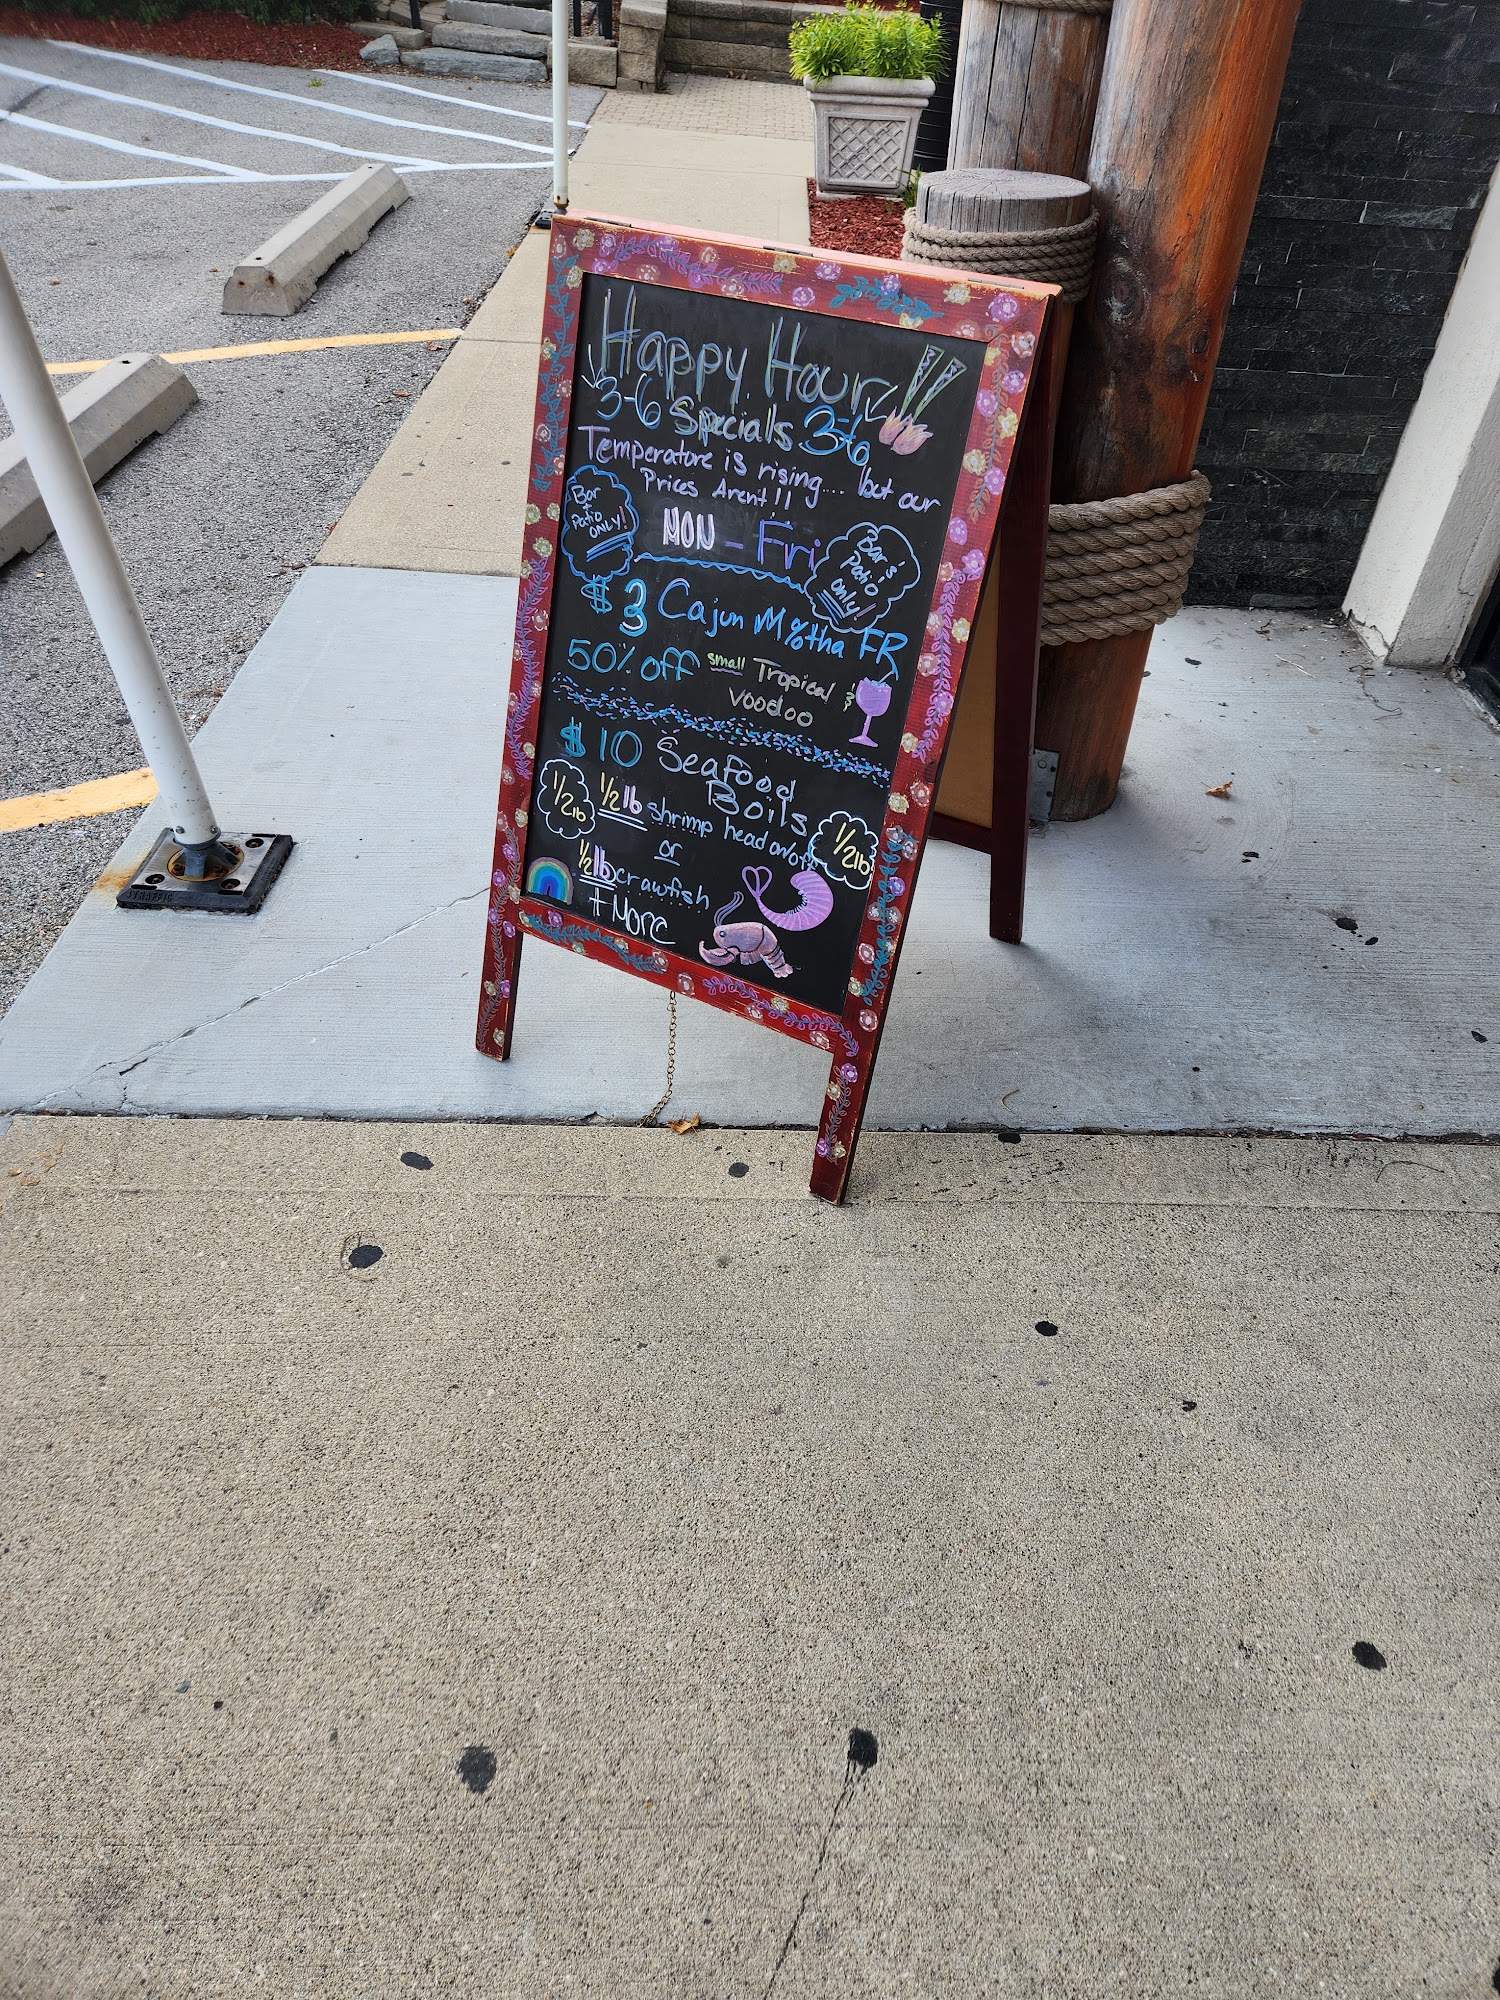 Happy Hour
3-6 Specials 3-6
Temperature is rising.... but our
Prices Arent!!
Bar + Patio ONLY!
MON - Fri
Bar & Patio only!
$3 Cajun M%tha FR
50% off small Tropical
VOODOO
$10 Seafood
Boils
1/2 lb
1/2 lb shrimp head on/off
1/2 lb
or
1/2 lb crawfish
+ More